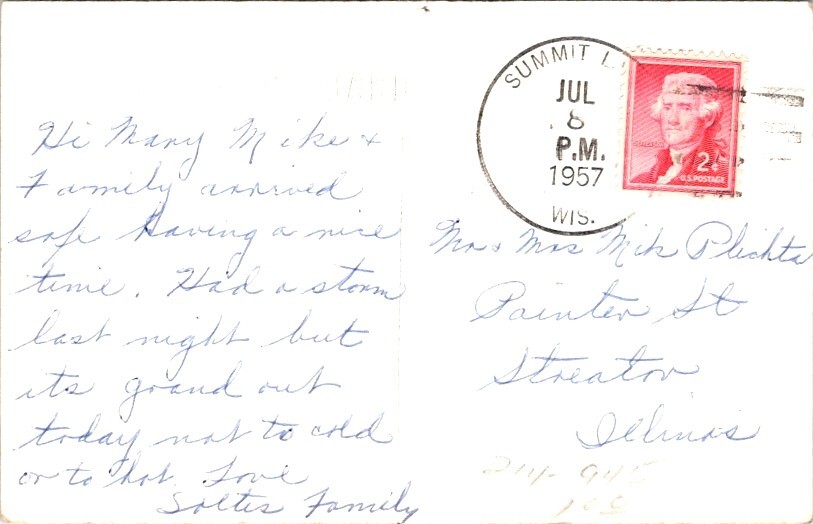 Hi Mary Mike +
Family arrived
safe having a nice
time. Had a storm
last night but
its grand out
today not to cold
or to hot. Love
Soltis Family
SUMMIT L
JUL
8
P.M.
1957
WIS.
JEFFERSON
2¢
U.S. POSTAGE
Mr + Mrs Mik Plichta
Painter St
Streator
Illinois
100